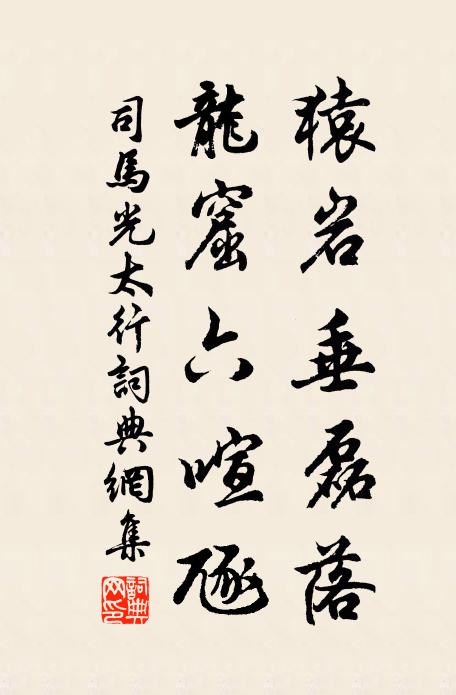 猿岩垂磊落
龍窟六喧豗
司馬光太行詞典網集